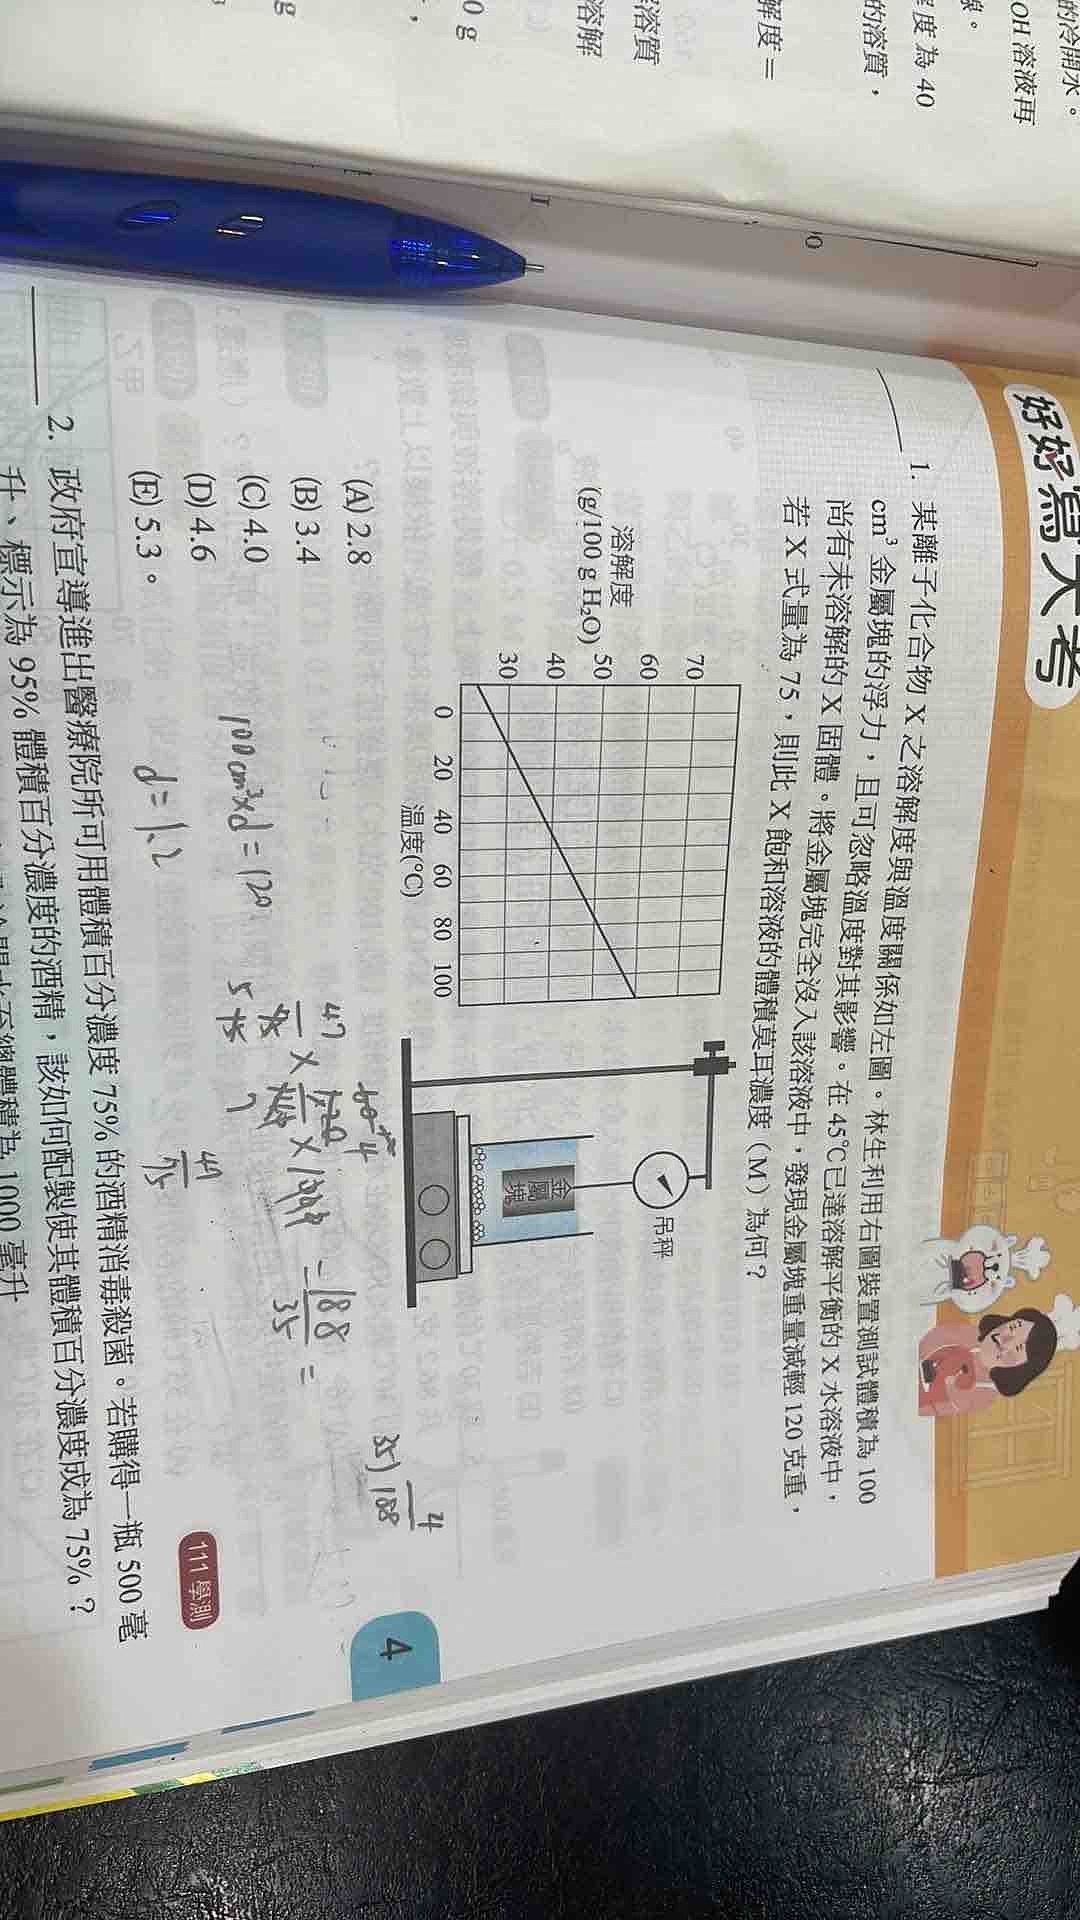 的冷開水。
OH 溶液再
線。
度為 40
的溶質，
解度＝
溶質
溶解
0 g
g
好好寫大考
1. 某離子化合物 X 之溶解度與溫度關係如左圖。林生利用右圖裝置測試體積為 100
cm³ 金屬塊的浮力，且可忽略溫度對其影響。在 45℃已達溶解平衡的 X 水溶液中，
尚有未溶解的 X 固體。將金屬塊完全沒入該溶液中，發現金屬塊重量減輕 120 克重，
若 X 式量為 75，則此 X 飽和溶液的體積莫耳濃度（M）為何？
溶解度
(g/100 g H₂O)
70
60
50
40
30
0 20 40 60 80 100
溫度(℃)
吊秤
金屬塊
(A) 2.8
(B) 3.4
(C) 4.0
(D) 4.6
(E) 5.3。
35)188
4
188
35
=
47
×
120
×
5
7
100cm³×d=120
d=1.2
111 學測
4
2. 政府宣導進出醫療院所可用體積百分濃度 75% 的酒精消毒殺菌。若購得一瓶 500 毫
升、標示為 95% 體積百分濃度的酒精，該如何配製使其體積百分濃度成為 75%？
至總體積為 1000 毫升